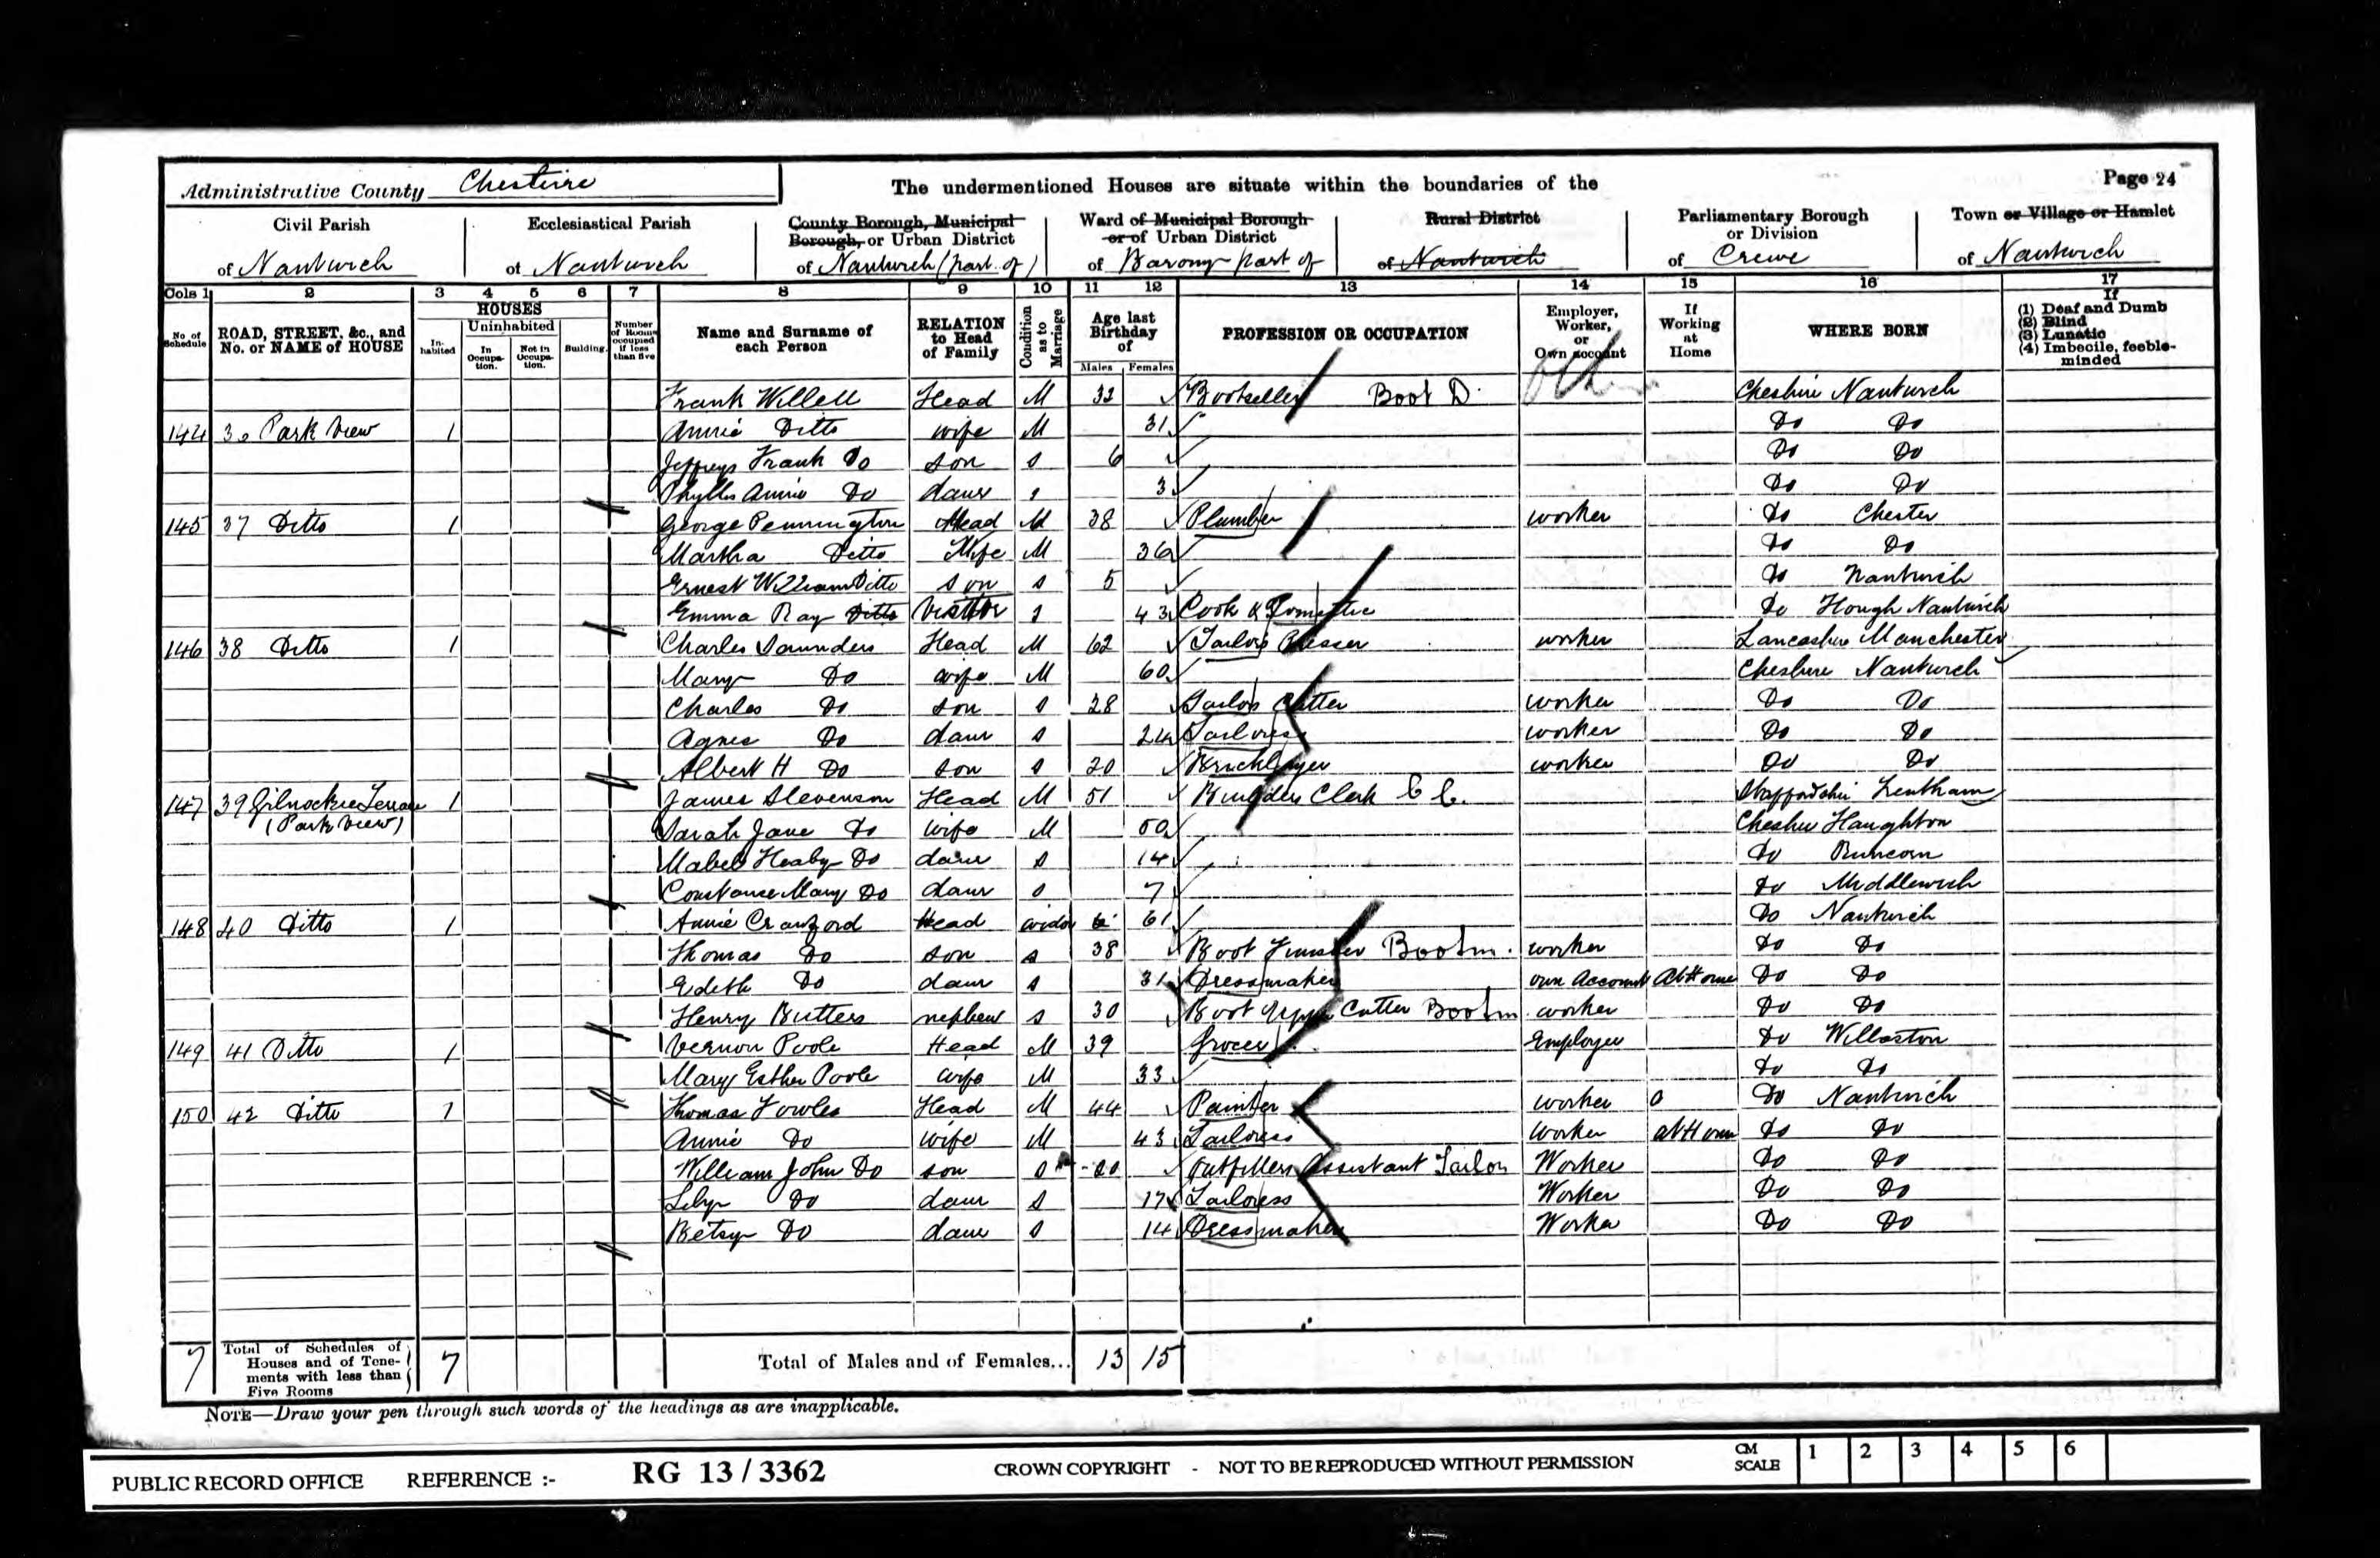 Administrative County Cheshire
The undermentioned Houses are situate within the boundaries of the
Page 24
Civil Parish of Nantwich
Ecclesiastical Parish of Nantwich
County Borough, Municipal Borough, or Urban District of Nantwich (part of)
Ward of Municipal Borough or of Urban District of Barony part of
Rural District of Nantwich
Parliamentary Borough or Division of Crewe
Town or Village or Hamlet of Nantwich
Cols 1 2 3 4 5 6 7 8 9 10 11 12 13 14 15 16 17
No. of Schedule
ROAD, STREET, &c., and No. or NAME of HOUSE
HOUSES
Inhabited
Uninhabited
In Occupation.
Not in Occupation.
Building.
Number of Rooms occupied if less than five
Name and Surname of each Person
RELATION to Head of Family
Condition as to Marriage
Age last Birthday of
Males Females
PROFESSION OR OCCUPATION
Employer, Worker, or Own account
If Working at Home
WHERE BORN
If
(1) Deaf and Dumb
(2) Blind
(3) Lunatic
(4) Imbecile, feeble-minded
Frank Head M 32 Bootseller Boot D. Cheshire Nantwich
144 Park View 1 Annie Ditto wife M 31 Do Do
Jeffreys Frank Do son s 6 Do Do
Phyllis Annie Do daur s 3 Do Do
145 37 Ditto 1 George Pennington Head M 38 Plumber worker Do Chester
Martha Ditto Wife M 36 Do Do
Ernest William Ditto son s 5 Do Nantwich
Emma Ray Ditto Visitor s 43 Cook & Domestic Do Hough Nantwich
146 38 Ditto 1 Charles Saunders Head M 62 Tailors Presser worker Lancashire Manchester
Mary Do wife M 60 Cheshire Nantwich
Charles Do son s 28 Tailors Cutter worker Do Do
Agnes Do daur s 24 Tailoress worker Do Do
Albert H Do son s 20 Bricklayer worker Do Do
147 39 Gilnockie Terrace 1 James Stevenson Head M 51 Builders Clerk C C. Staffordshire Trentham
(Park View) Sarah Jane Do wife M 50 Cheshire Haughton
Mabel Do daur s 14 Do Runcorn
Constance Mary Do daur s 7 Do Middlewich
148 40 Ditto 1 Annie Crawford Head widow 61 Do Nantwich
Thomas Do son s 38 Boot Finisher Bootm. worker Do Do
Edith Do daur s 31 Dressmaker own Account At Home Do Do
Henry Butters nephew s 30 Boot Upper Cutter Bootm. worker Do Do
149 41 Ditto 1 Vernon Poole Head M 39 Grocer Employer Do Willaston
Mary Esther Poole wife M 33 Do Do
150 42 Ditto 1 Thomas Fowles Head M 44 Painter worker Do Nantwich
Annie Do wife M 43 Tailoress Worker at Home Do Do
William John Do son s 20 Outfitters Assistant Tailor Worker Do Do
Lily Do daur s 17 Tailoress Worker Do Do
Betsy Do daur s 14 Dressmaker Worker Do Do
7 Total of Schedules of Houses and of Tenements with less than Five Rooms 7 Total of Males and of Females... 13 15
NOTE—Draw your pen through such words of the headings as are inapplicable.
PUBLIC RECORD OFFICE REFERENCE :- RG 13 / 3362 CROWN COPYRIGHT - NOT TO BE REPRODUCED WITHOUT PERMISSION CM SCALE 1 2 3 4 5 6